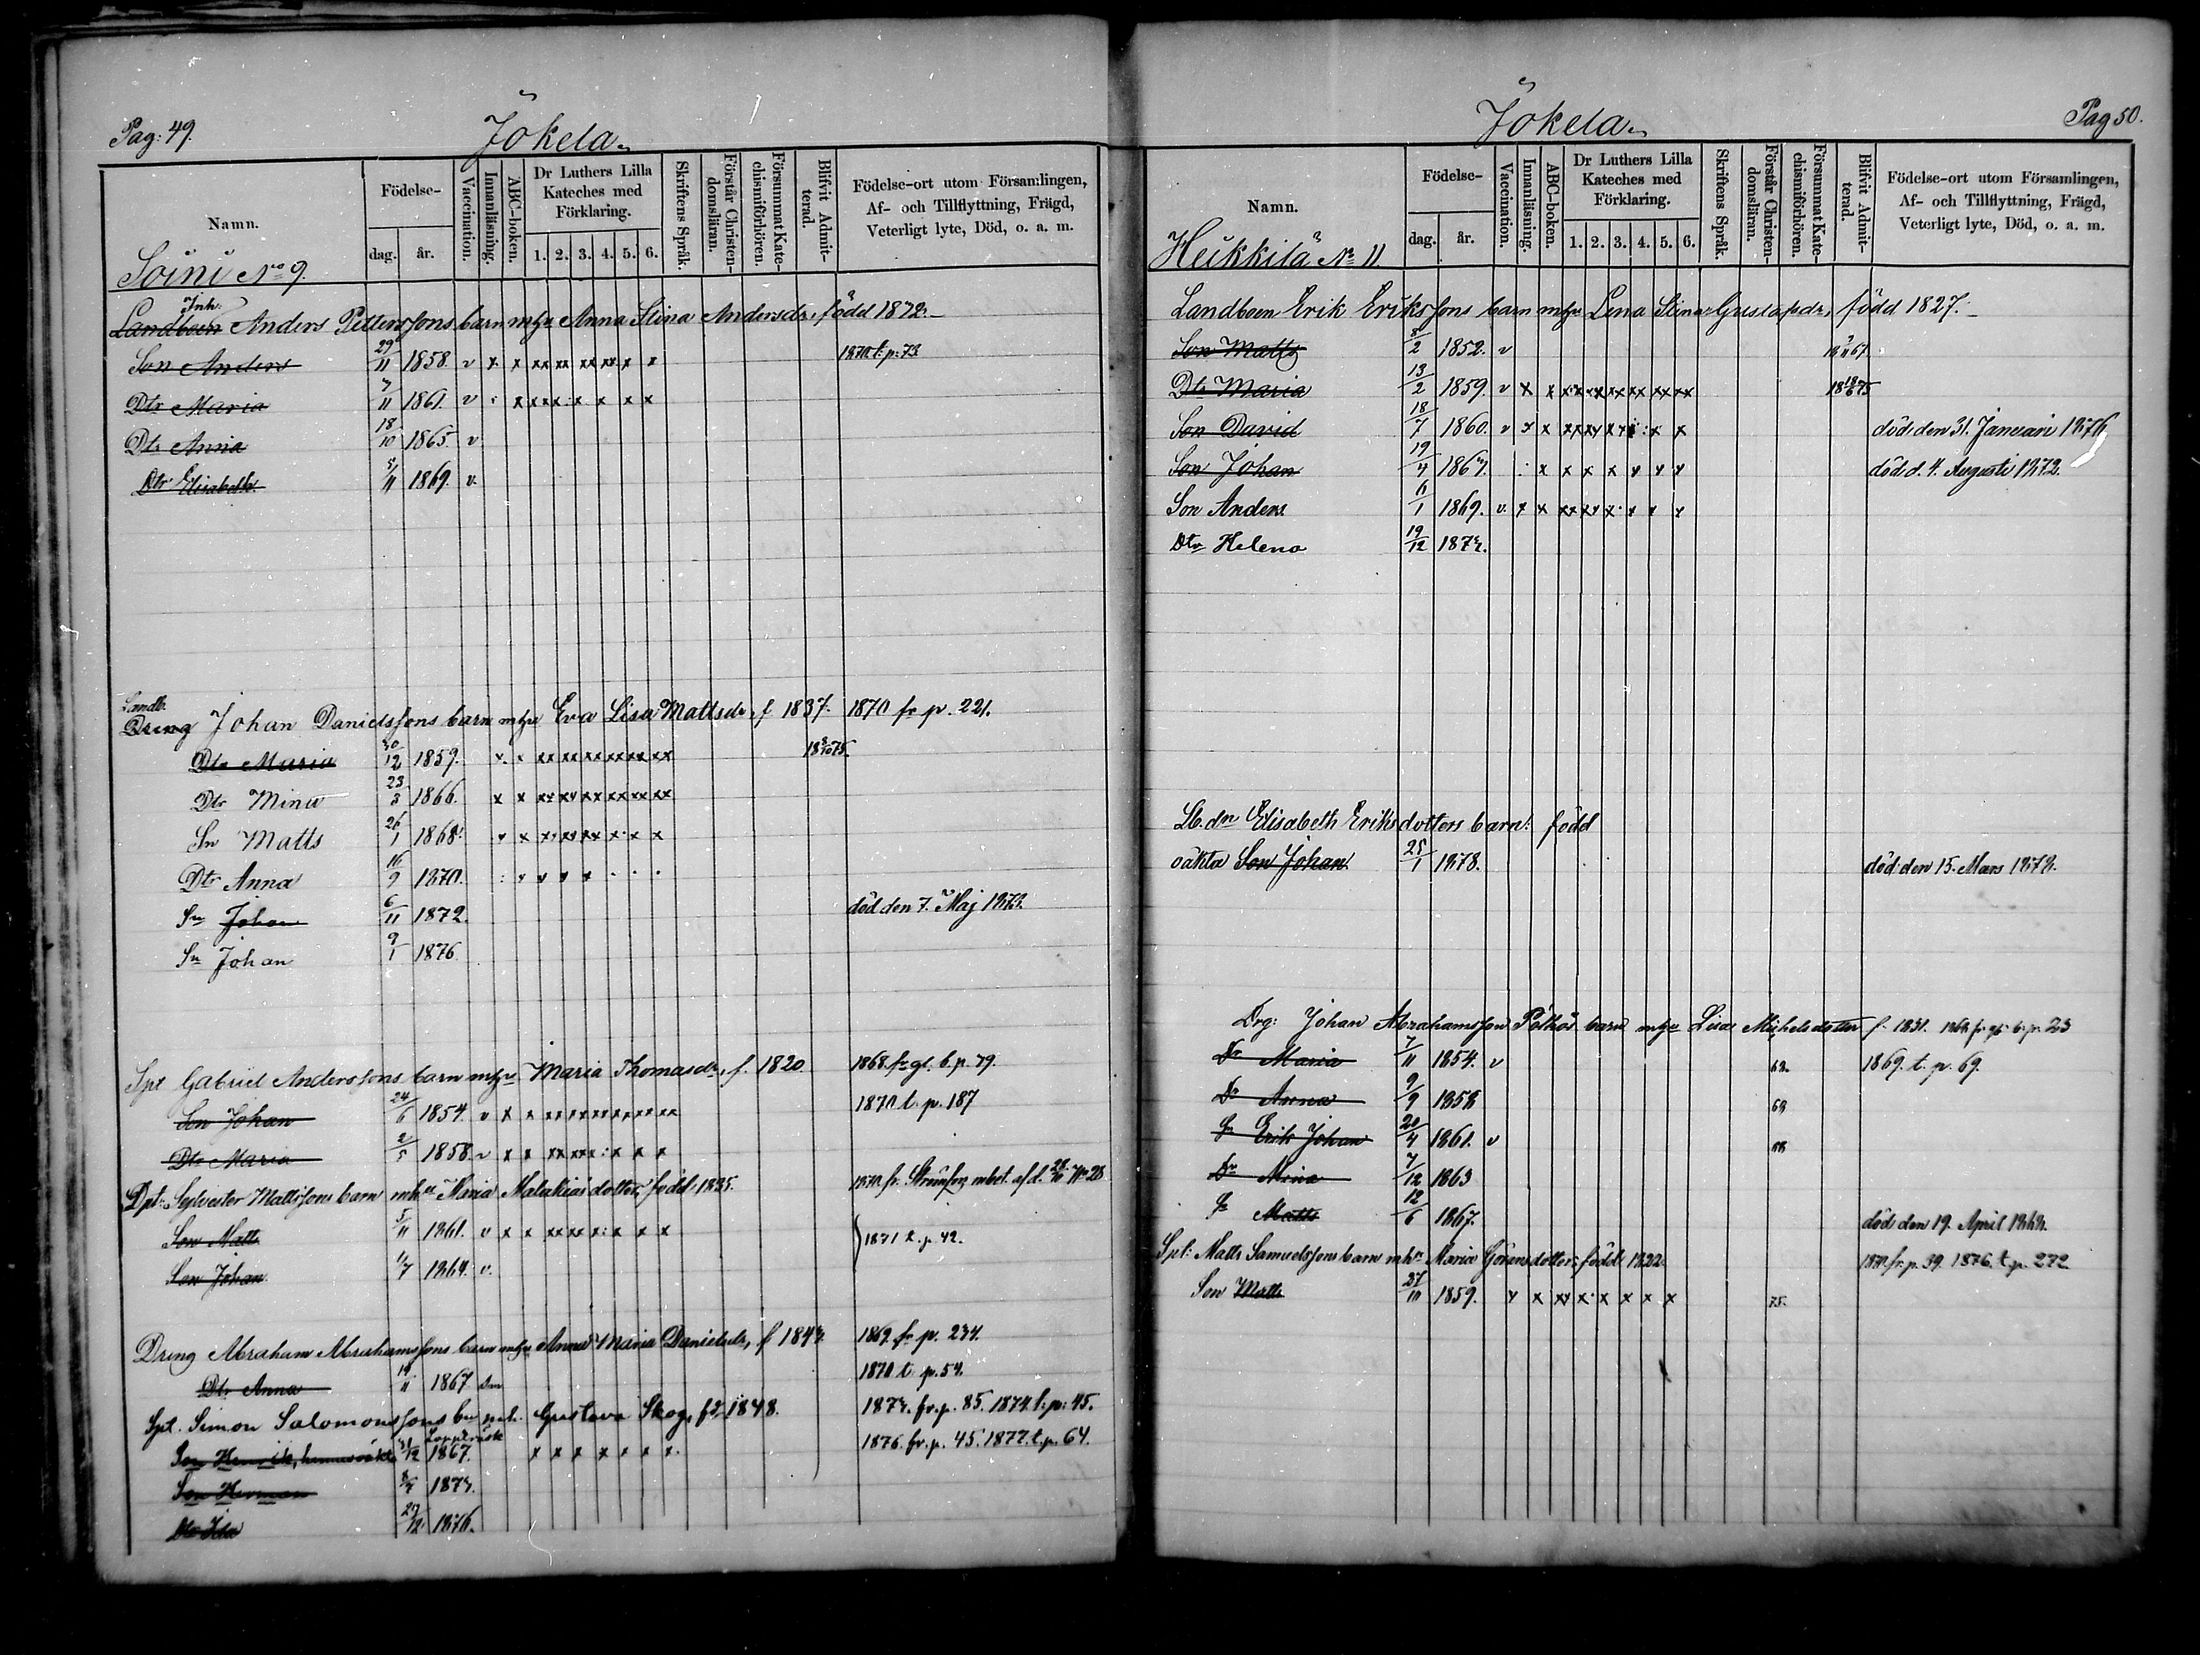 Pag: 49.
Jokela
Namn.
Födelse-
dag.
år.
Vaccination.
Innanläsning.
ABC-boken.
Dr Luthers Lilla
Kateches med
Förklaring.
1. 2. 3. 4. 5. 6.
Skriftens Språk.
Förstår Christen-
domsläran.
Försummat Kate-
chismiförhören.
Blifvit Admit-
terad.
Födelse-ort utom Församlingen,
Af- och Tillflyttning, Frägd,
Veterligt lyte, Död, o. a. m.
Soini No 9.
Inh.
Landboen Anders Petterssons barn mhu Anna Stina Andersdr, född 1872.
Son Anders 29/11 1858. v x x xx xx xx xx x x 1870 t. p: 73.
Dtr Maria 7/11 1861. v
Dtr Anna 18/10 1865. v
Dtr Elisabeth 5/11 1869. v.
Landb.
Dreng Johan Danielssons barn mhu Eva Lisa Mattsdr, f 1837. 1870 fr p. 221.
Dtr Maria 30/12 1859. x x xx xx xx xx xx xx 18 75.
Dtr Mina 23/3 1866. x x xx xx xx xx xx xx
Sn Matts 26/1 1868.
Dtr Anna 16/9 1870.
Sn Johan 6/11 1872. död den 7. Maj 1873.
Sn Johan 9/1 1876
Spt Gabriel Anderssons barn mhu Maria Thomasdr, f. 1820. 1868. fr gl. b. p. 79.
Son Johan 24/6 1854. v x x xx xx xx xx xx xx 1870 t. p. 187
Dtr Maria 2/5 1858. v x x
Dpt: Sylvester Mattssons barn mhu Maria Malakiasdotter, född: 1835.
Son Matts 5/11 1861. v x x 1871 t. p. 42.
Son Johan 1/7 1864. v.
Dreng Abraham Abrahamssons barn mhu Anna Maria Danielsdr, f 1843. 1869 fr p. 234.
Dtr Anna 14/11 1867 1870 t. p. 54.
Spt. Simon Salomonssons bn mh. Gustava Skog, f 1848. 1873. fr. p. 85. 1874. t. p: 45.
Son Henrik, hennes oäkta /12 1867. x x x x x x x. 1876. fr. p. 45. 1877. t. p. 64.
Son Herman 1873.
Dtr Ida 29/12 1876.
Pag 50.
Jokela
Namn.
Födelse-
dag.
år.
Vaccination.
Innanläsning.
ABC-boken.
Dr Luthers Lilla
Kateches med
Förklaring.
1. 2. 3. 4. 5. 6.
Skriftens Språk.
Förstår Christen-
domsläran.
Försummat Kate-
chismiförhören.
Blifvit Admit-
terad.
Födelse-ort utom Församlingen,
Af- och Tillflyttning, Frägd,
Veterligt lyte, Död, o. a. m.
Heikkilä No 11.
Landboen Erik Erikssons barn mhu Lena Stina Gustafsdr, född 1827.
Son Matts 8/2 1852. v
Dtr Maria 13/2 1859. v x x
Son David 18/7 1860. v x x död den 31. Januari 1876
Son Johan 19/4 1867. x x x x x x x död d. 4. Augusti 1872.
Son Anders 6/1 1869. v. x x
Dtr Helena 19/12 1873.
Lb. dr Elisabeth Eriksdotters barn: född
oäkta Son Johan 25/1 1878. död den 15. Mars 1878.
Drg: Johan Abrahamsson Pölhös barn mhu Lisa Michelsdotter f. 1831. 1868 fr gl. b. p. 23
Dr Maria 7/11 1854. v 69. 1869. t. p. 69.
Dr Anna 9/9 1858 69
Sn Erik Johan 20/4 1861. v
Dr Mina 7/12 1863
Sn Matts 12/6 1867. död den 19. April 1868.
Spt: Matts Samuelssons barn mhu Maria Göransdotter, född: 1822. fr. p. 39. 1876. t. p. 272
Son Matts 27/10 1859. 75.